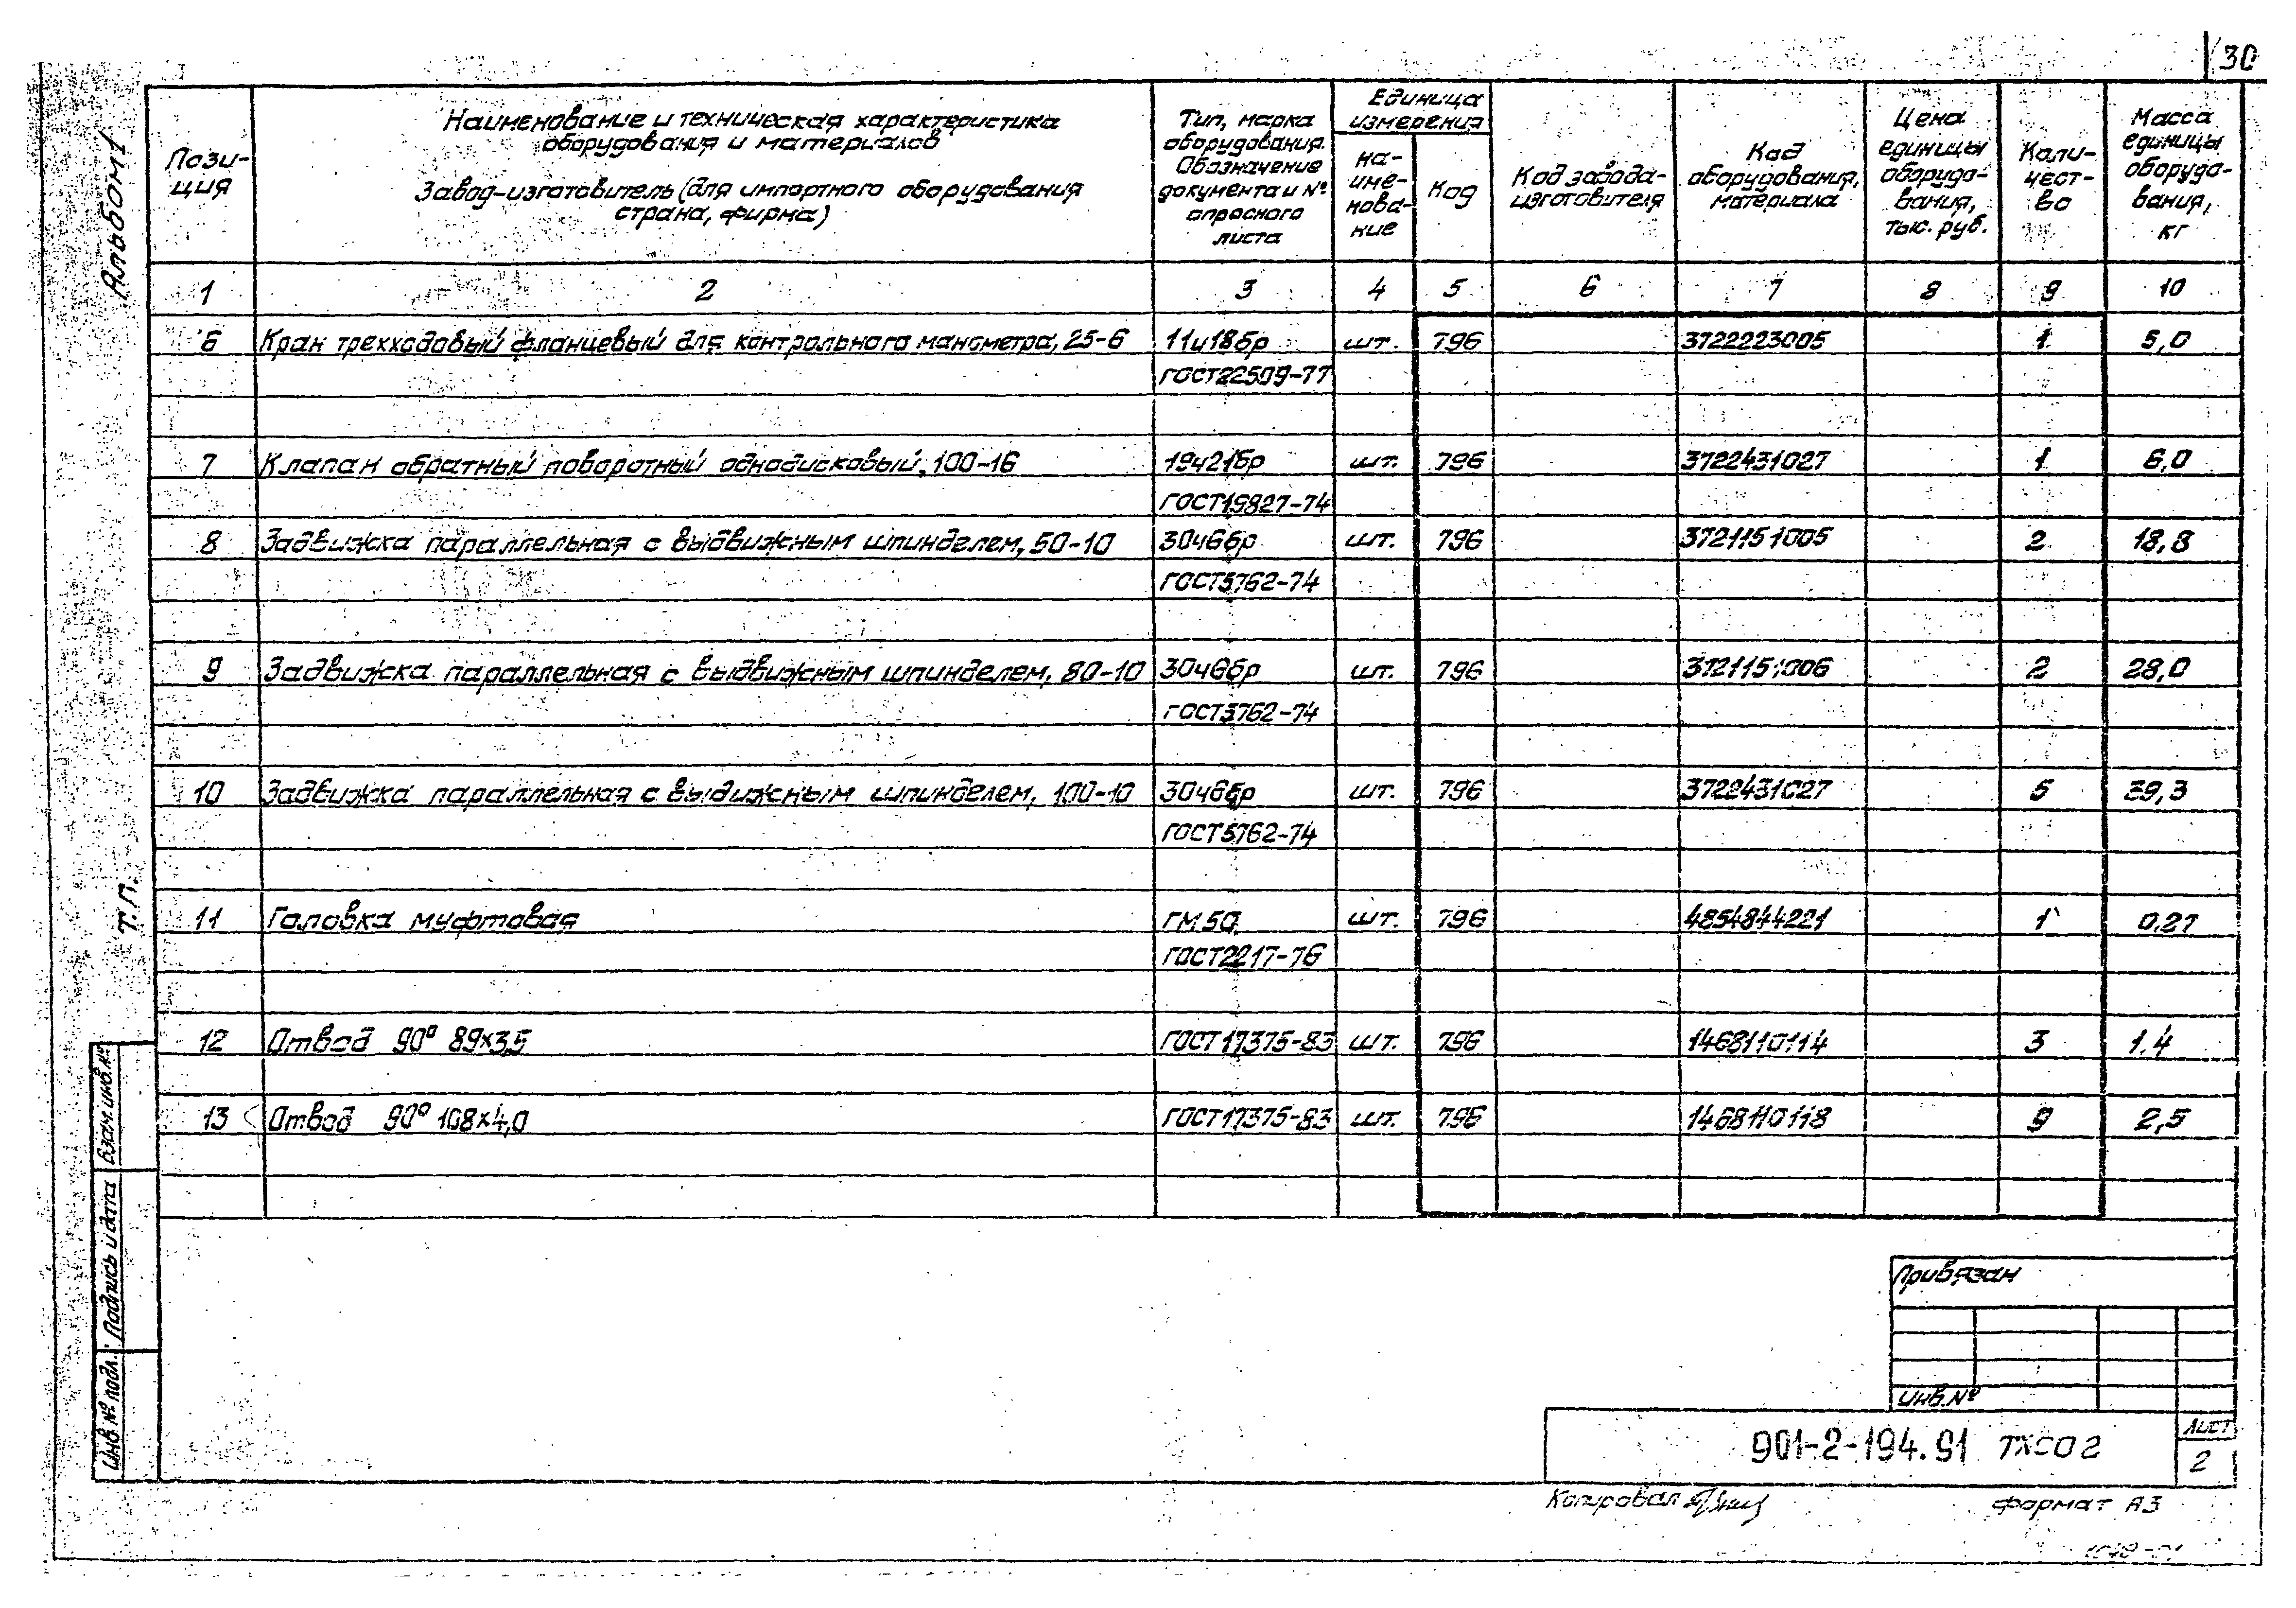 30
Альбом 1
Т.П.
Пози-
ция
Наименование и техническая характеристика
оборудования и материалов
Завод-изготовитель (для импортного оборудования
страна, фирма)
Тип, марка
оборудования.
Обозначение
документа и №
опросного
листа
Единица
измерения
на-
име-
нова-
ние
Код
Код завода-
изготовителя
Код
оборудования,
материала
Цена
единицы
оборудо-
вания,
тыс. руб.
Коли-
чест-
во
Масса
единицы
оборудо-
вания,
кг
1 2 3 4 5 6 7 8 9 10
6 Кран трехходовый фланцевый для контрольного манометра, 25-6 11ч18бр шт. 796 3722223005 1 5,0
ГОСТ22509-77
7 Клапан обратный поворотный однодисковый, 100-16 19ч21бр шт. 796 3722431027 1 6,0
ГОСТ19827-74
8 Задвижка параллельная с выдвижным шпинделем, 50-10 30ч6бр шт. 796 3721151005 2 18,8
ГОСТ5762-74
9 Задвижка параллельная с выдвижным шпинделем, 80-10 30ч6бр шт. 796 3721151006 2 28,0
ГОСТ5762-74
10 Задвижка параллельная с выдижсным шпинделем, 100-10 30ч6бр шт. 796 3722431027 5 39,3
ГОСТ5762-74
11 Головка муфтовая ГМ50 шт. 796 4854844221 1 0,27
ГОСТ2217-76
12 Отвод 90° 89×3,5 ГОСТ17375-83 шт. 796 1468110114 3 1.4
13 Отвод 90° 108×4,0 ГОСТ17375-83 шт. 796 1468110118 9 2,5
Взам. инв. №
Подпись и дата
Инв № подл.
Привязан
Инв. №
901-2-194.91 ТХСО2
Лист
2
Копировал
формат А3